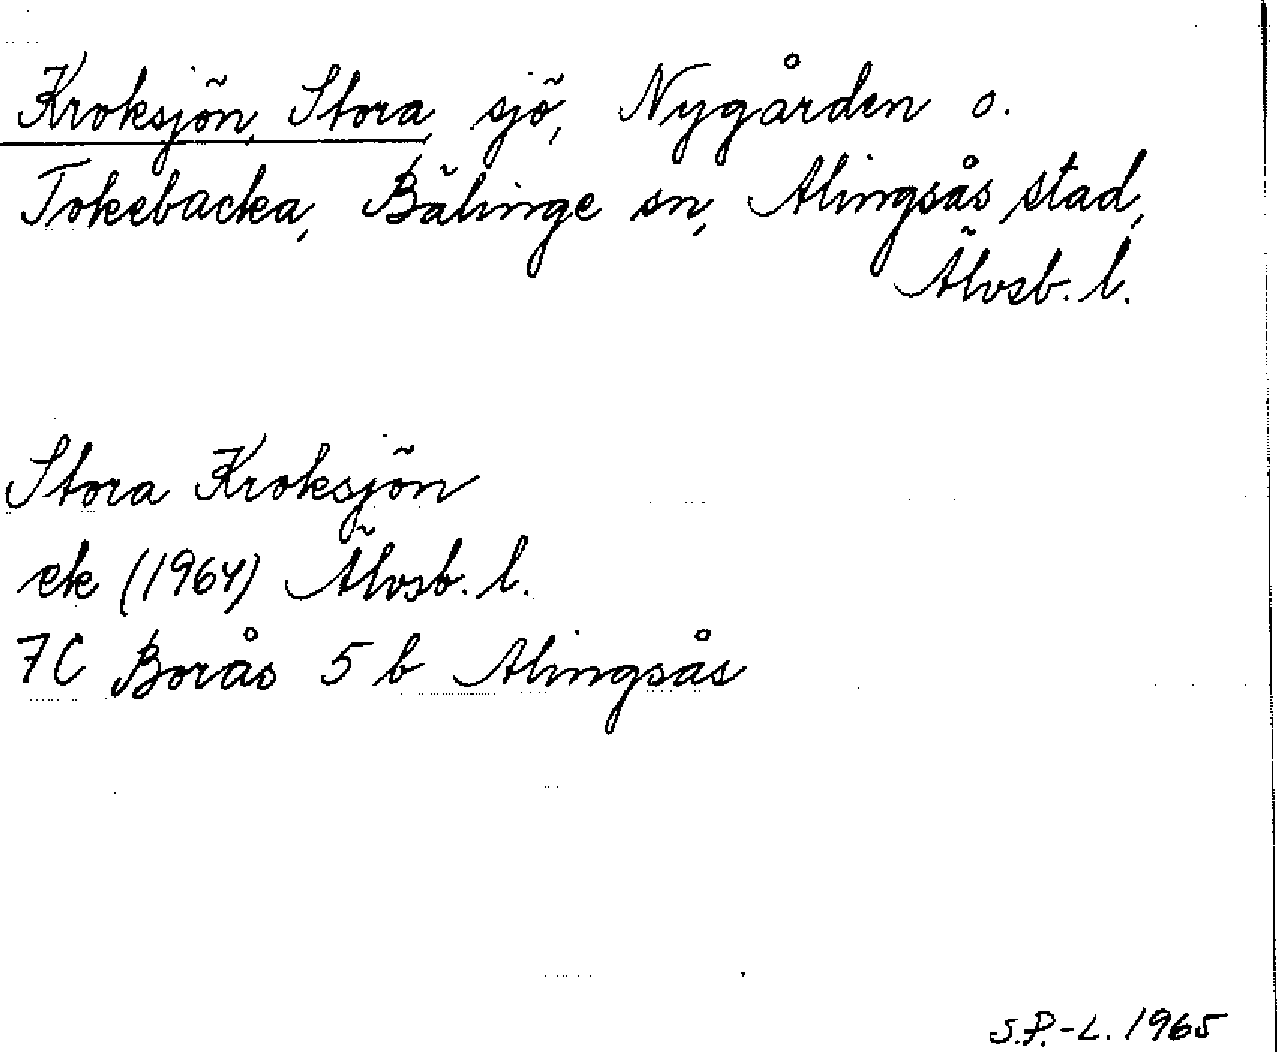 Kroksjön, Stora, sjö, Nygården o.
Tokebacka, Bälinge sn, Alingsås stad,
Älvsb. l.
Stora Kroksjön
ek (1964) Älvsb. l.
7C Borås 5 b Alingsås
S.P.-L. 1965